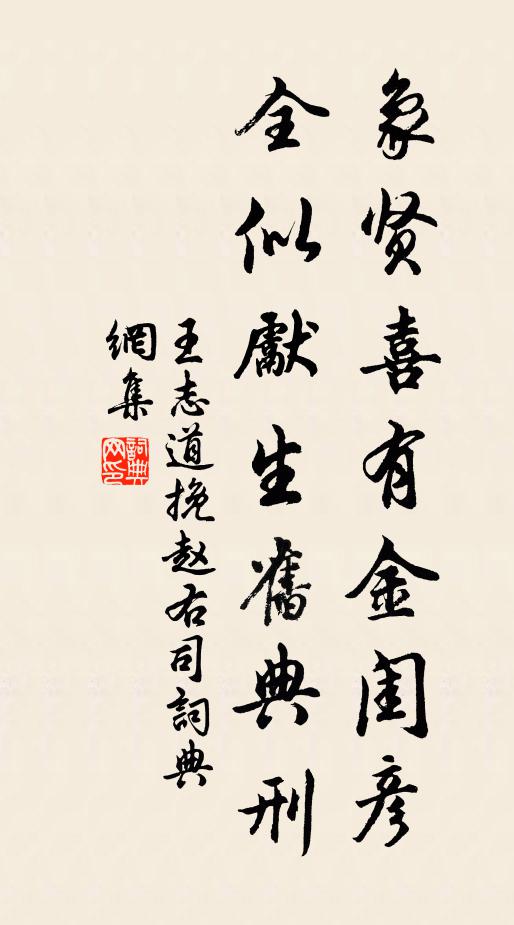 象贤喜有金闺彦
全似獻生舊典刑
王志道挽赵右司詞典
網集
詞典網印